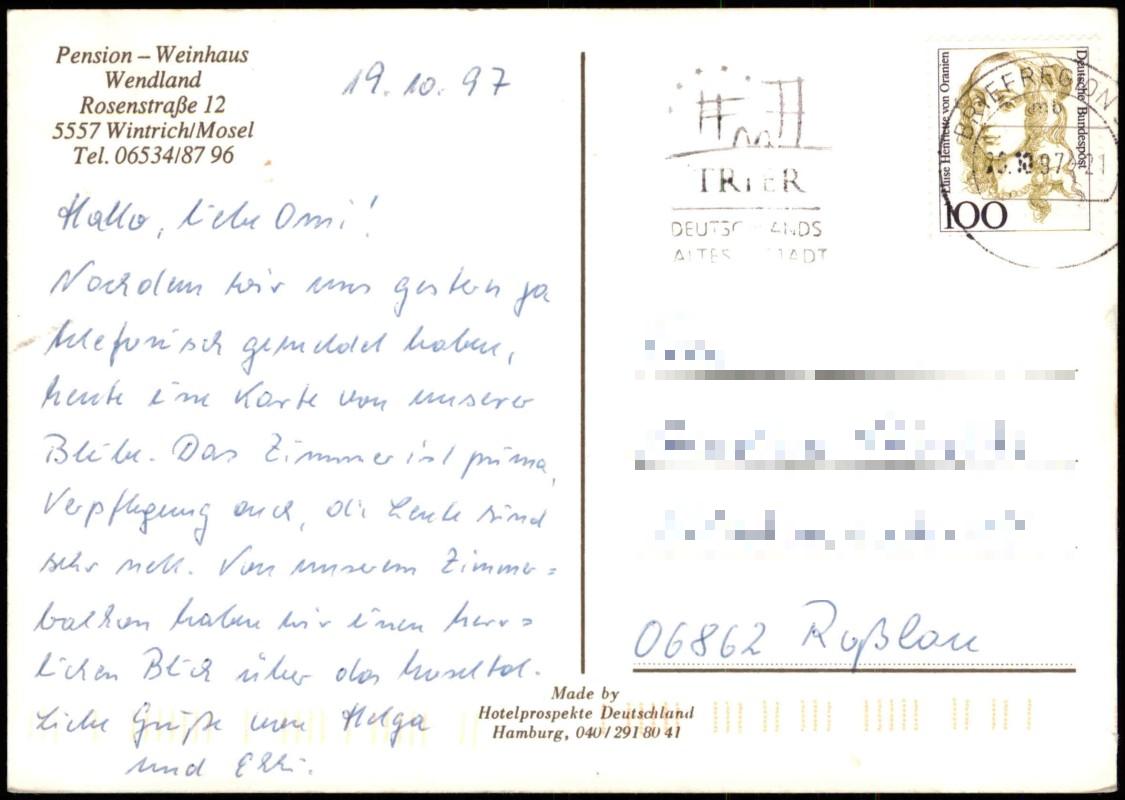 Pension – Weinhaus
Wendland
Rosenstraße 12
5557 Wintrich/Mosel
Tel. 06534/87 96
19.10.97
Hallo, liebe Omi!
Nachdem wir uns gestern ja
telefonisch gemeldet haben,
heute eine Karte von unserer
Bleibe. Das Zimmer ist prima,
Verpflegung auch, die Leute sind
sehr nett. Von unserem Zimmer=
balkon haben wir einen herr=
lichen Blick über das Moseltal.
Liebe Grüße von Helga
und
TRIER
DEUTSCHLANDS
ÄLTESTE STADT
Luise Henriette von Oranien
Deutsche Bundespost
100
BRIEFREGION
mb
97-21
06862 Roßlau
Made by
Hotelprospekte Deutschland
Hamburg, 040/291 80 41